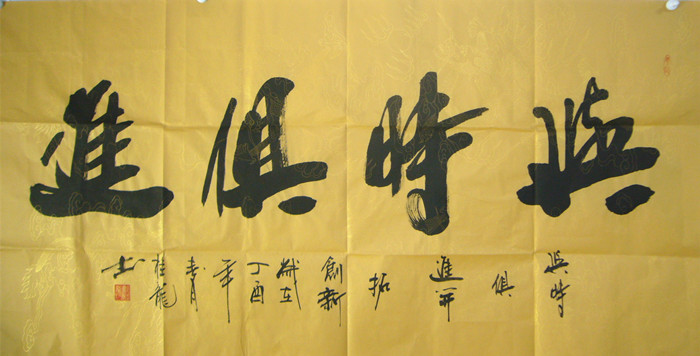 與時俱進
與時
俱
進開
拓
創新
歲在
丁酉
年
春月
桂龍
書